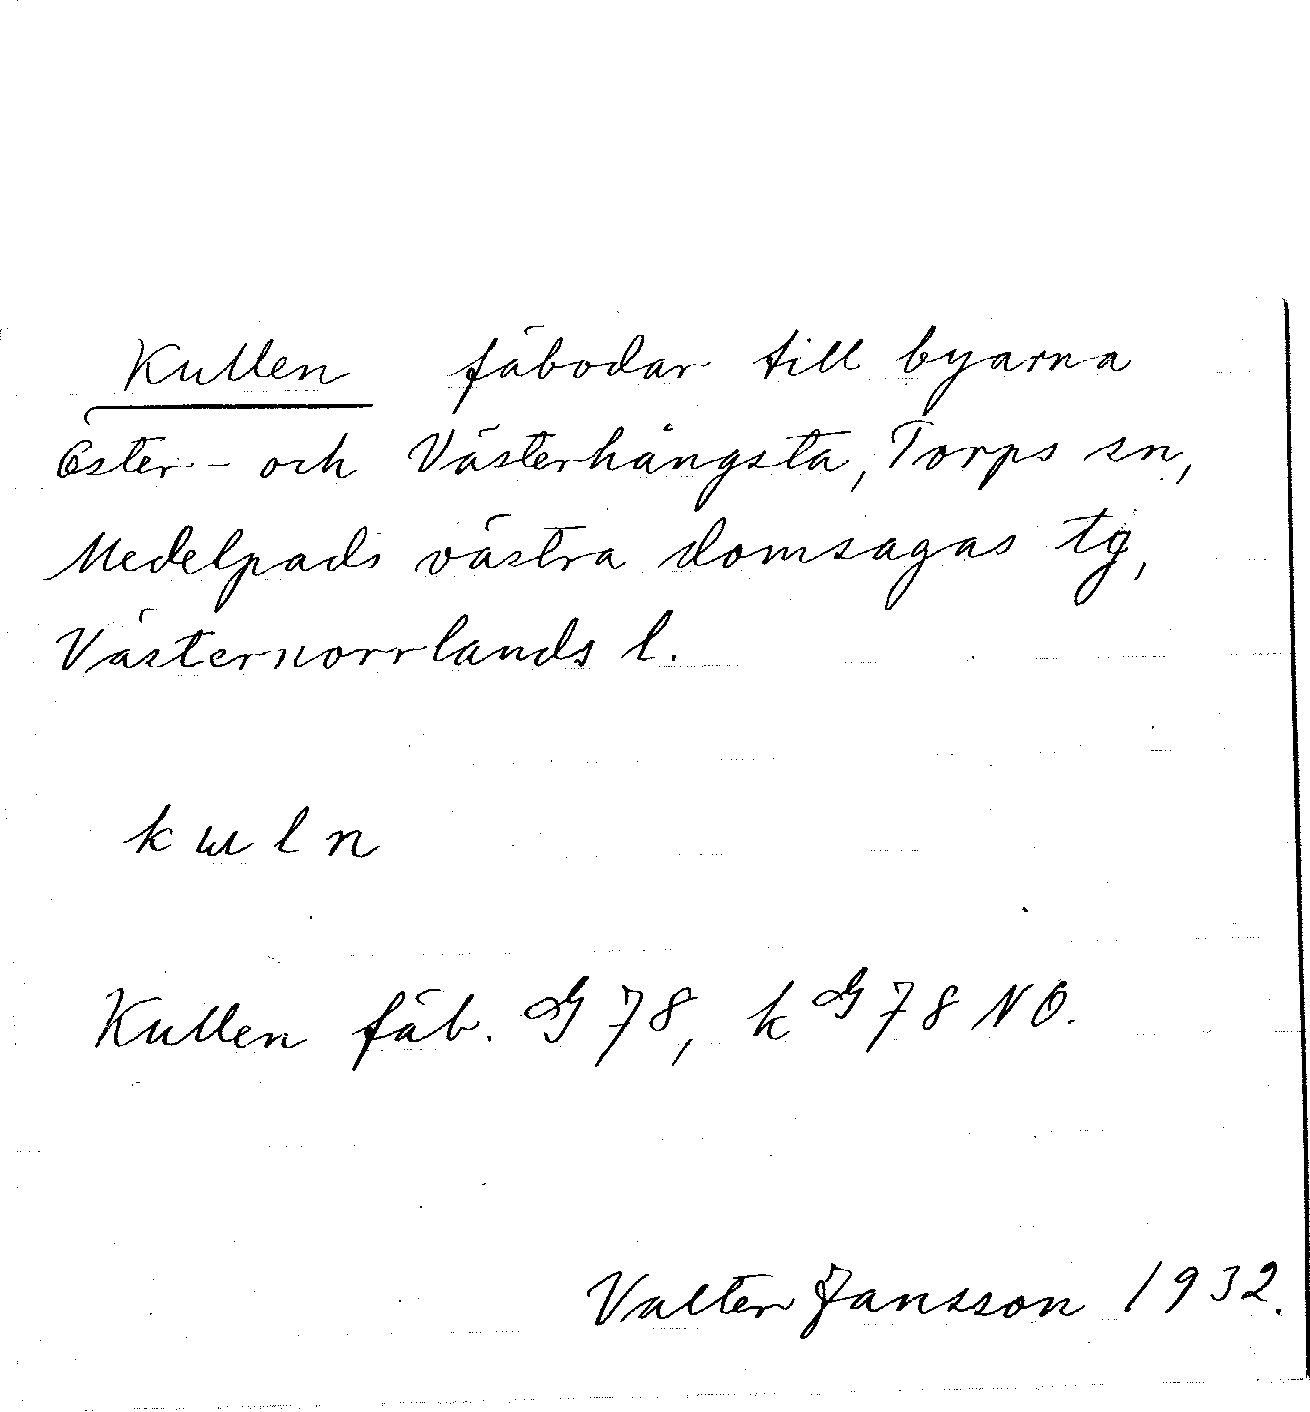 Kullen fäbodar till byarna
Öster- och Västerhångsta, Torps sn,
Medelpads västra domsagas tg,
Västernorrlands l.
kɯln
Kullen fäb. G 78, k G 78 NO.
Valter Jansson 1932.